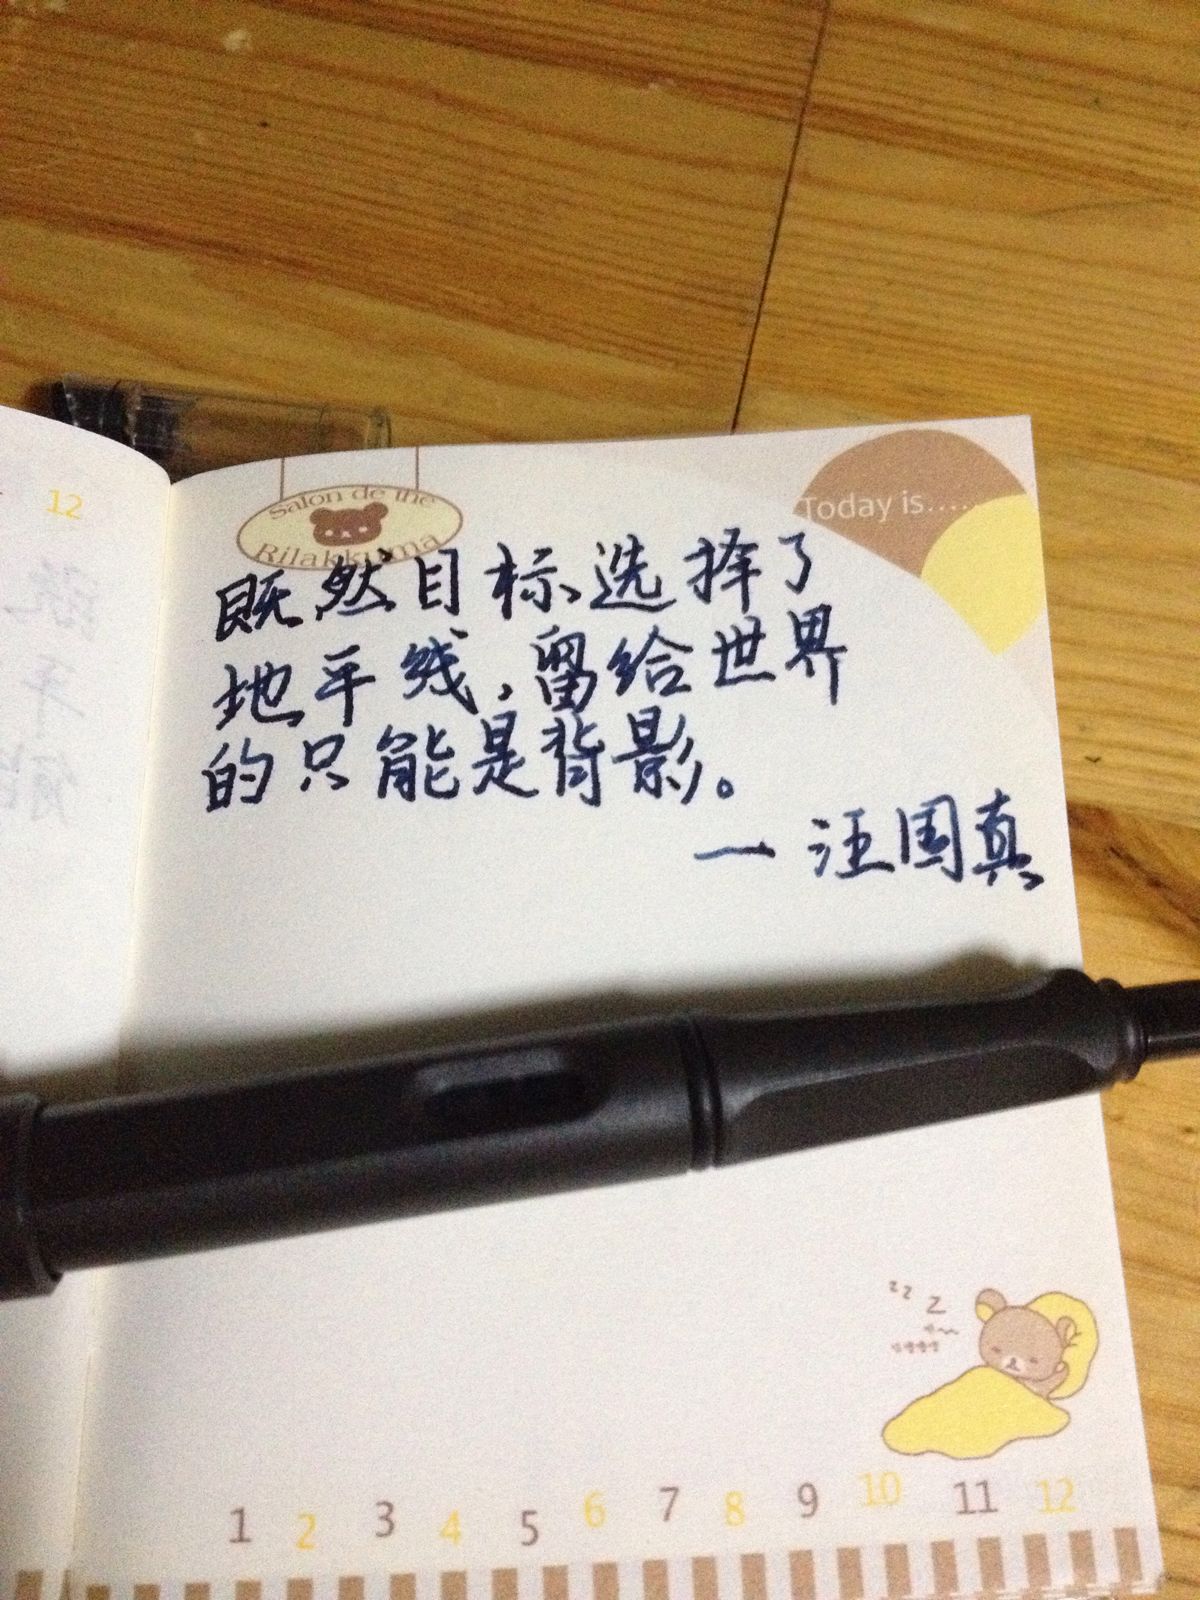 12
Salon de the
Rilakkuma
Today is......
既然目标选择了
地平线,留给世界
的只能是背影。
— 汪国真
zzz
1 2 3 4 5 6 7 8 9 10 11 12